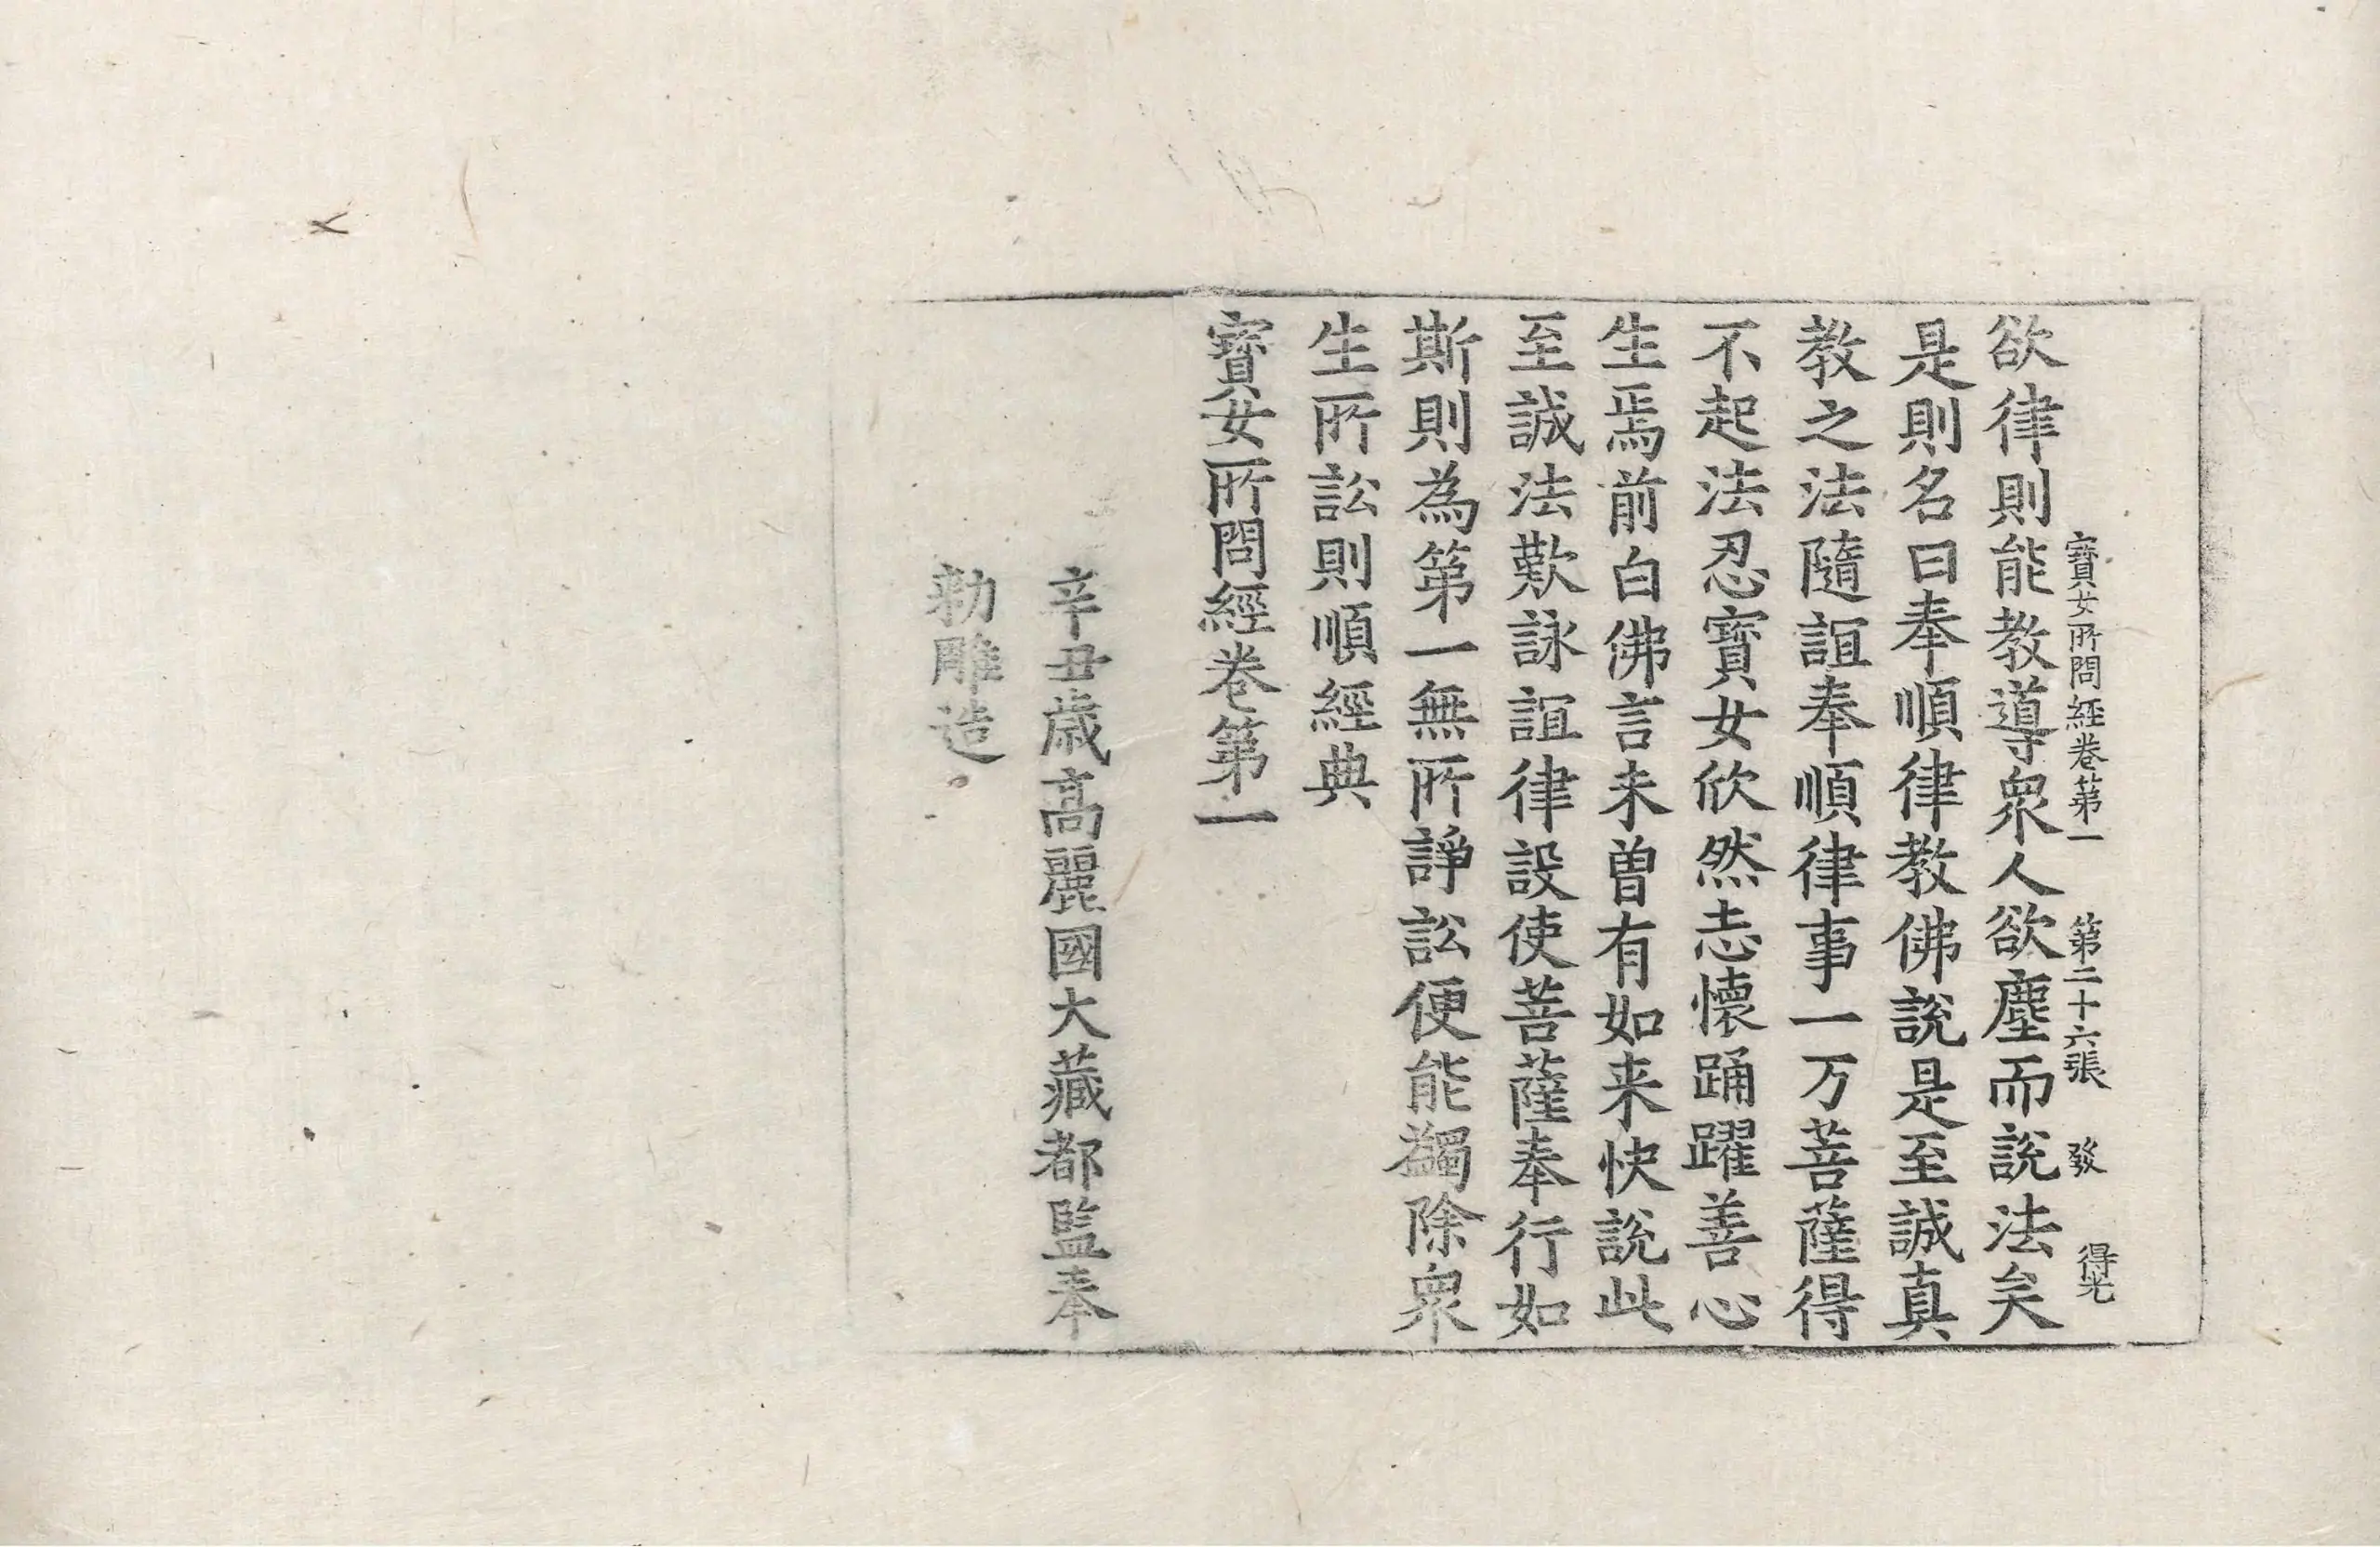 寶女所問經卷第一 第二十六張 發 得光
欲律則能教導衆人欲塵而說法矣
是則名曰奉順律教佛說是至誠真
教之法隨誼奉順律事一万菩薩得
不起法忍寶女欣然志懷踊躍善心
生焉前白佛言未曽有如来快說此
至誠法歎詠誼律設使菩薩奉行如
斯則為第一無所諍訟便能蠲除衆
生所訟則順經典
寶女所問經卷第一
辛丑歲高麗國大藏都監奉
勑雕造